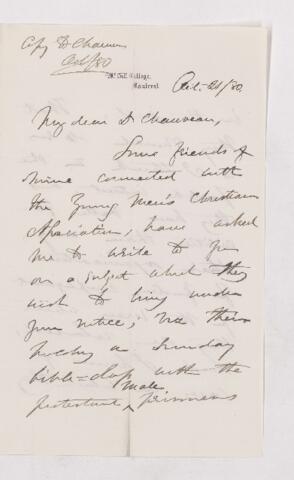 Copy Dr Chauveau
Oct/80
McGill College,
Montreal
Oct. 21/80.
My dear Dr Chauveau,
Some friends of
mine connected with
the Young Men's Christian
Association, have asked
me to write to you
on a subject which they
wish to bring under
your notice; viz their
holding a Sunday
bible=class with the
protestant male prisoners